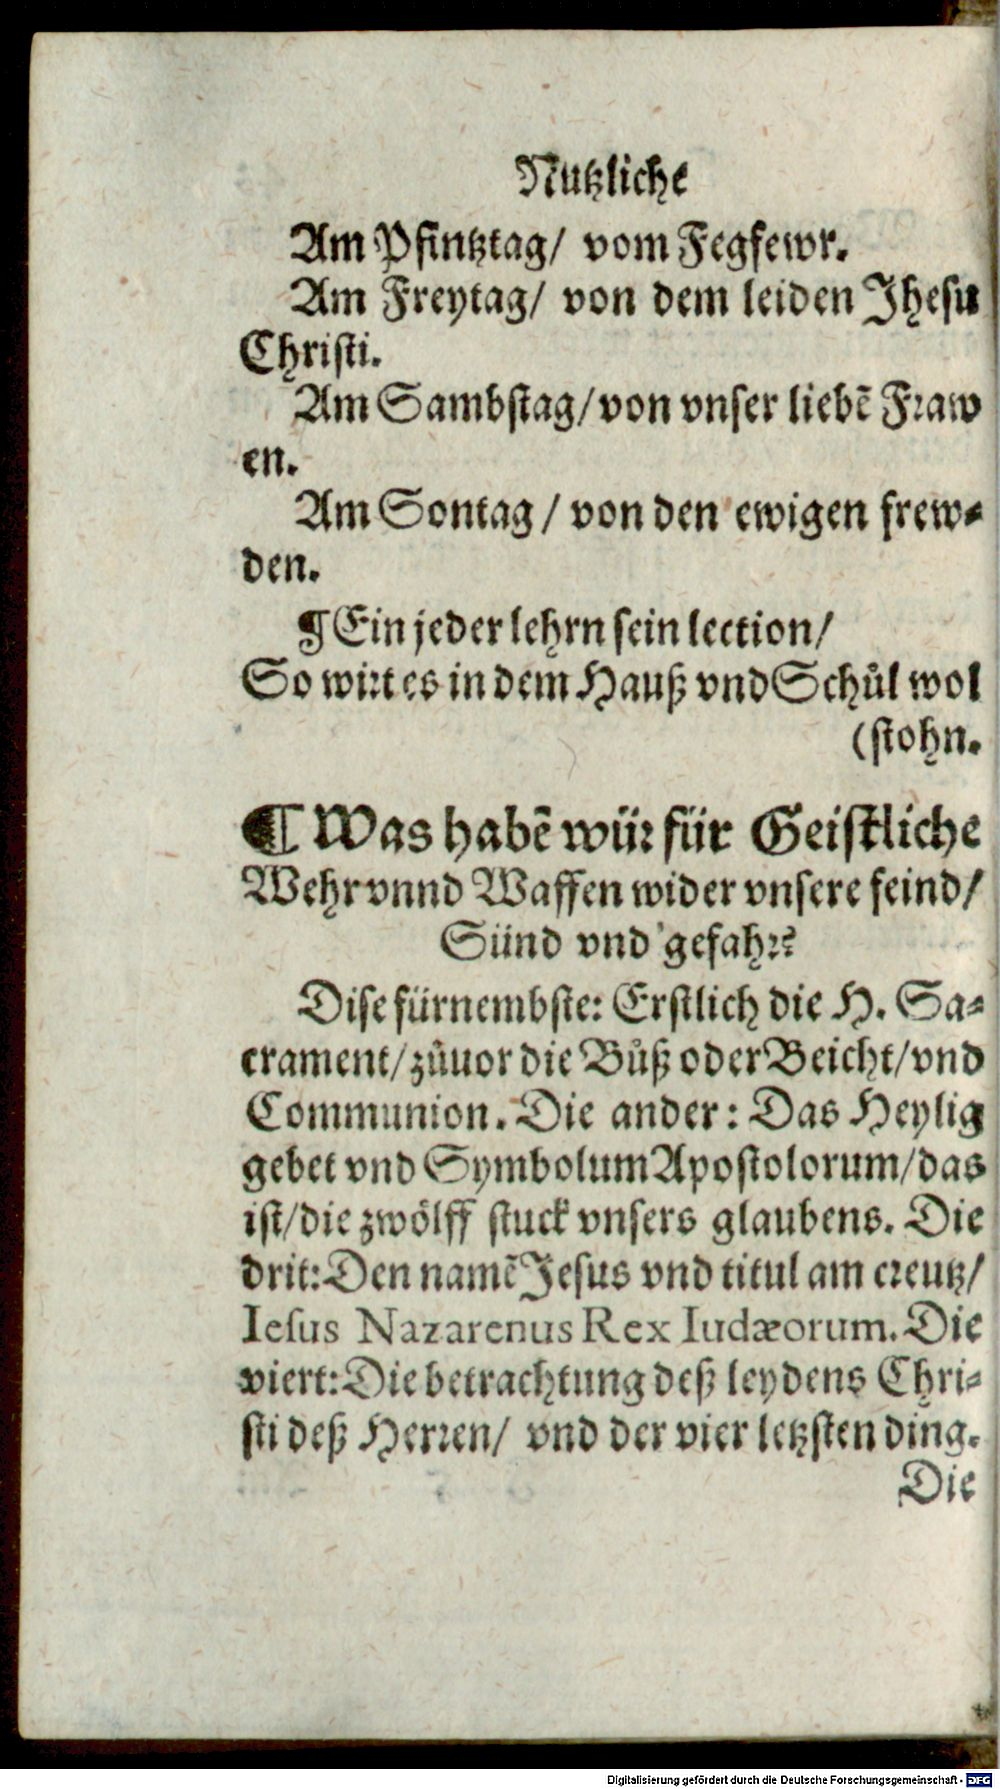 Nutzliche
Am Pfintztag/ vom Fegfewr.
Am Freytag/ von dem leiden Jhesu
Christi.
Am Sambstag/ von vnser liebẽ Fraw
en.
Am Sontag / von den ewigen frew⸗
den.
¶ Ein jeder lehrn sein lection/
So wirt es in dem Hauß vnd Schůl wol
(stohn.
¶ Was habẽ wür für Geistliche
Wehr vnnd Waffen wider vnsere feind/
Sünd vnd gefahr?
Dise fürnembste: Erstlich die H. Sa⸗
crament/ zůuor die Bůß oder Beicht/ vnd
Communion. Die ander: Das Heylig
gebet vnd Symbolum Apostolorum/ das
ist/ die zwölff stuck vnsers glaubens. Die
drit: Den namẽ Jesus vnd titul am creutz/
Iesus Nazarenus Rex Iudæorum. Die
viert: Die betrachtung deß leydens Chri⸗
sti deß Herren/ vnd der vier letzsten ding.
Die
Digitalisierung gefördert durch die Deutsche Forschungsgemeinschaft - DFG